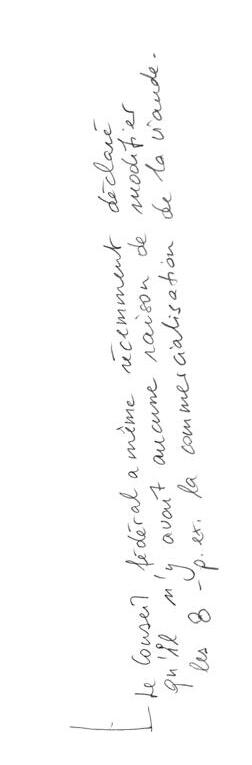 Le Conseil fédéral a même récemment déclaré
qu'il n'y avait aucune raison de modifier
les 8 - p. ex. la commercialisation de la viande.